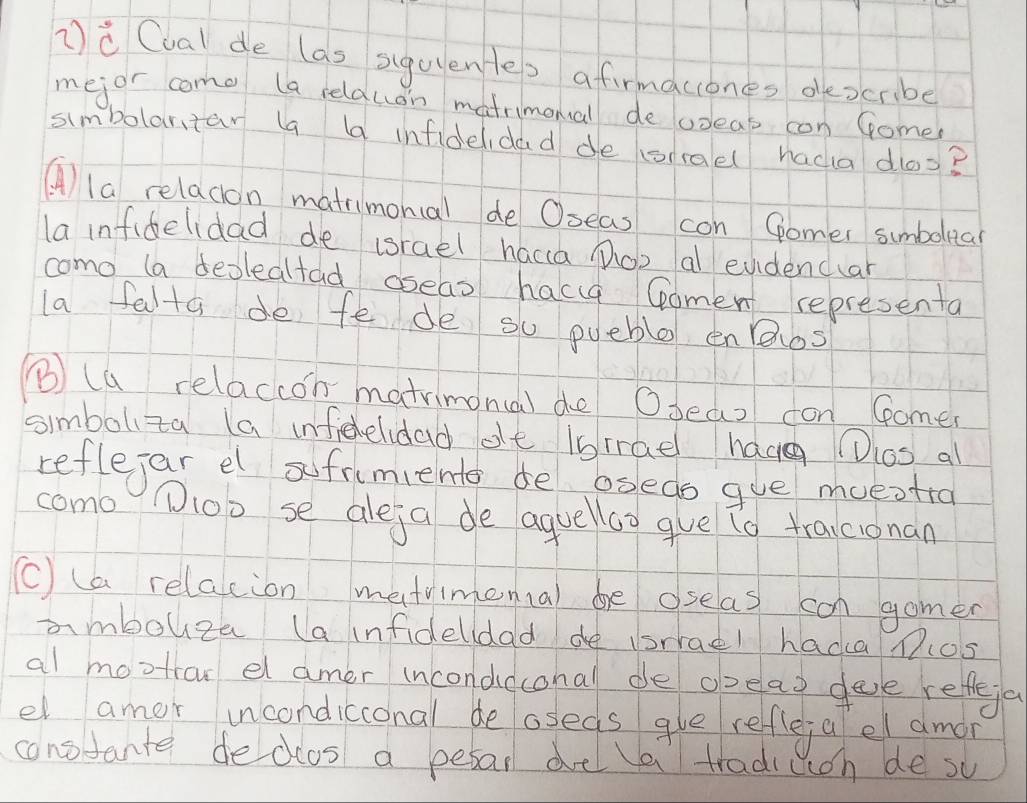 2) ¿ Cual de las siguientes afirmaciones describe
mejor como la relación matrimonial de oseas con Gomer
simbolarizar la la infidelidad de isrrael hacia dios?
(A) la relacion matrimonial de Oseas con Gomer simbolizar
la infidelidad de israel hacia Dios al evidenciar
como la deslealtad oseas hacia Gomer representa
la falta de fe de su pueblo en Dios
(B) la relaccón matrimonial de Oseas con Gomer
simboliza la infidelidad de Isrrael hacia Dios al
reflejar el sufrimiento de oseas que muestra
como Dios se aleja de aquellos que lo traicionan
(C) la relacion matrimonial de oseas con gomer
simboliza la infidelidad de isrrael hacia Dios
al mostrar el amor incondiccional de oseas que refleja
el amor incondiccional de oseas que refleja el amor
constante de dios a pesar de la tradicion de su